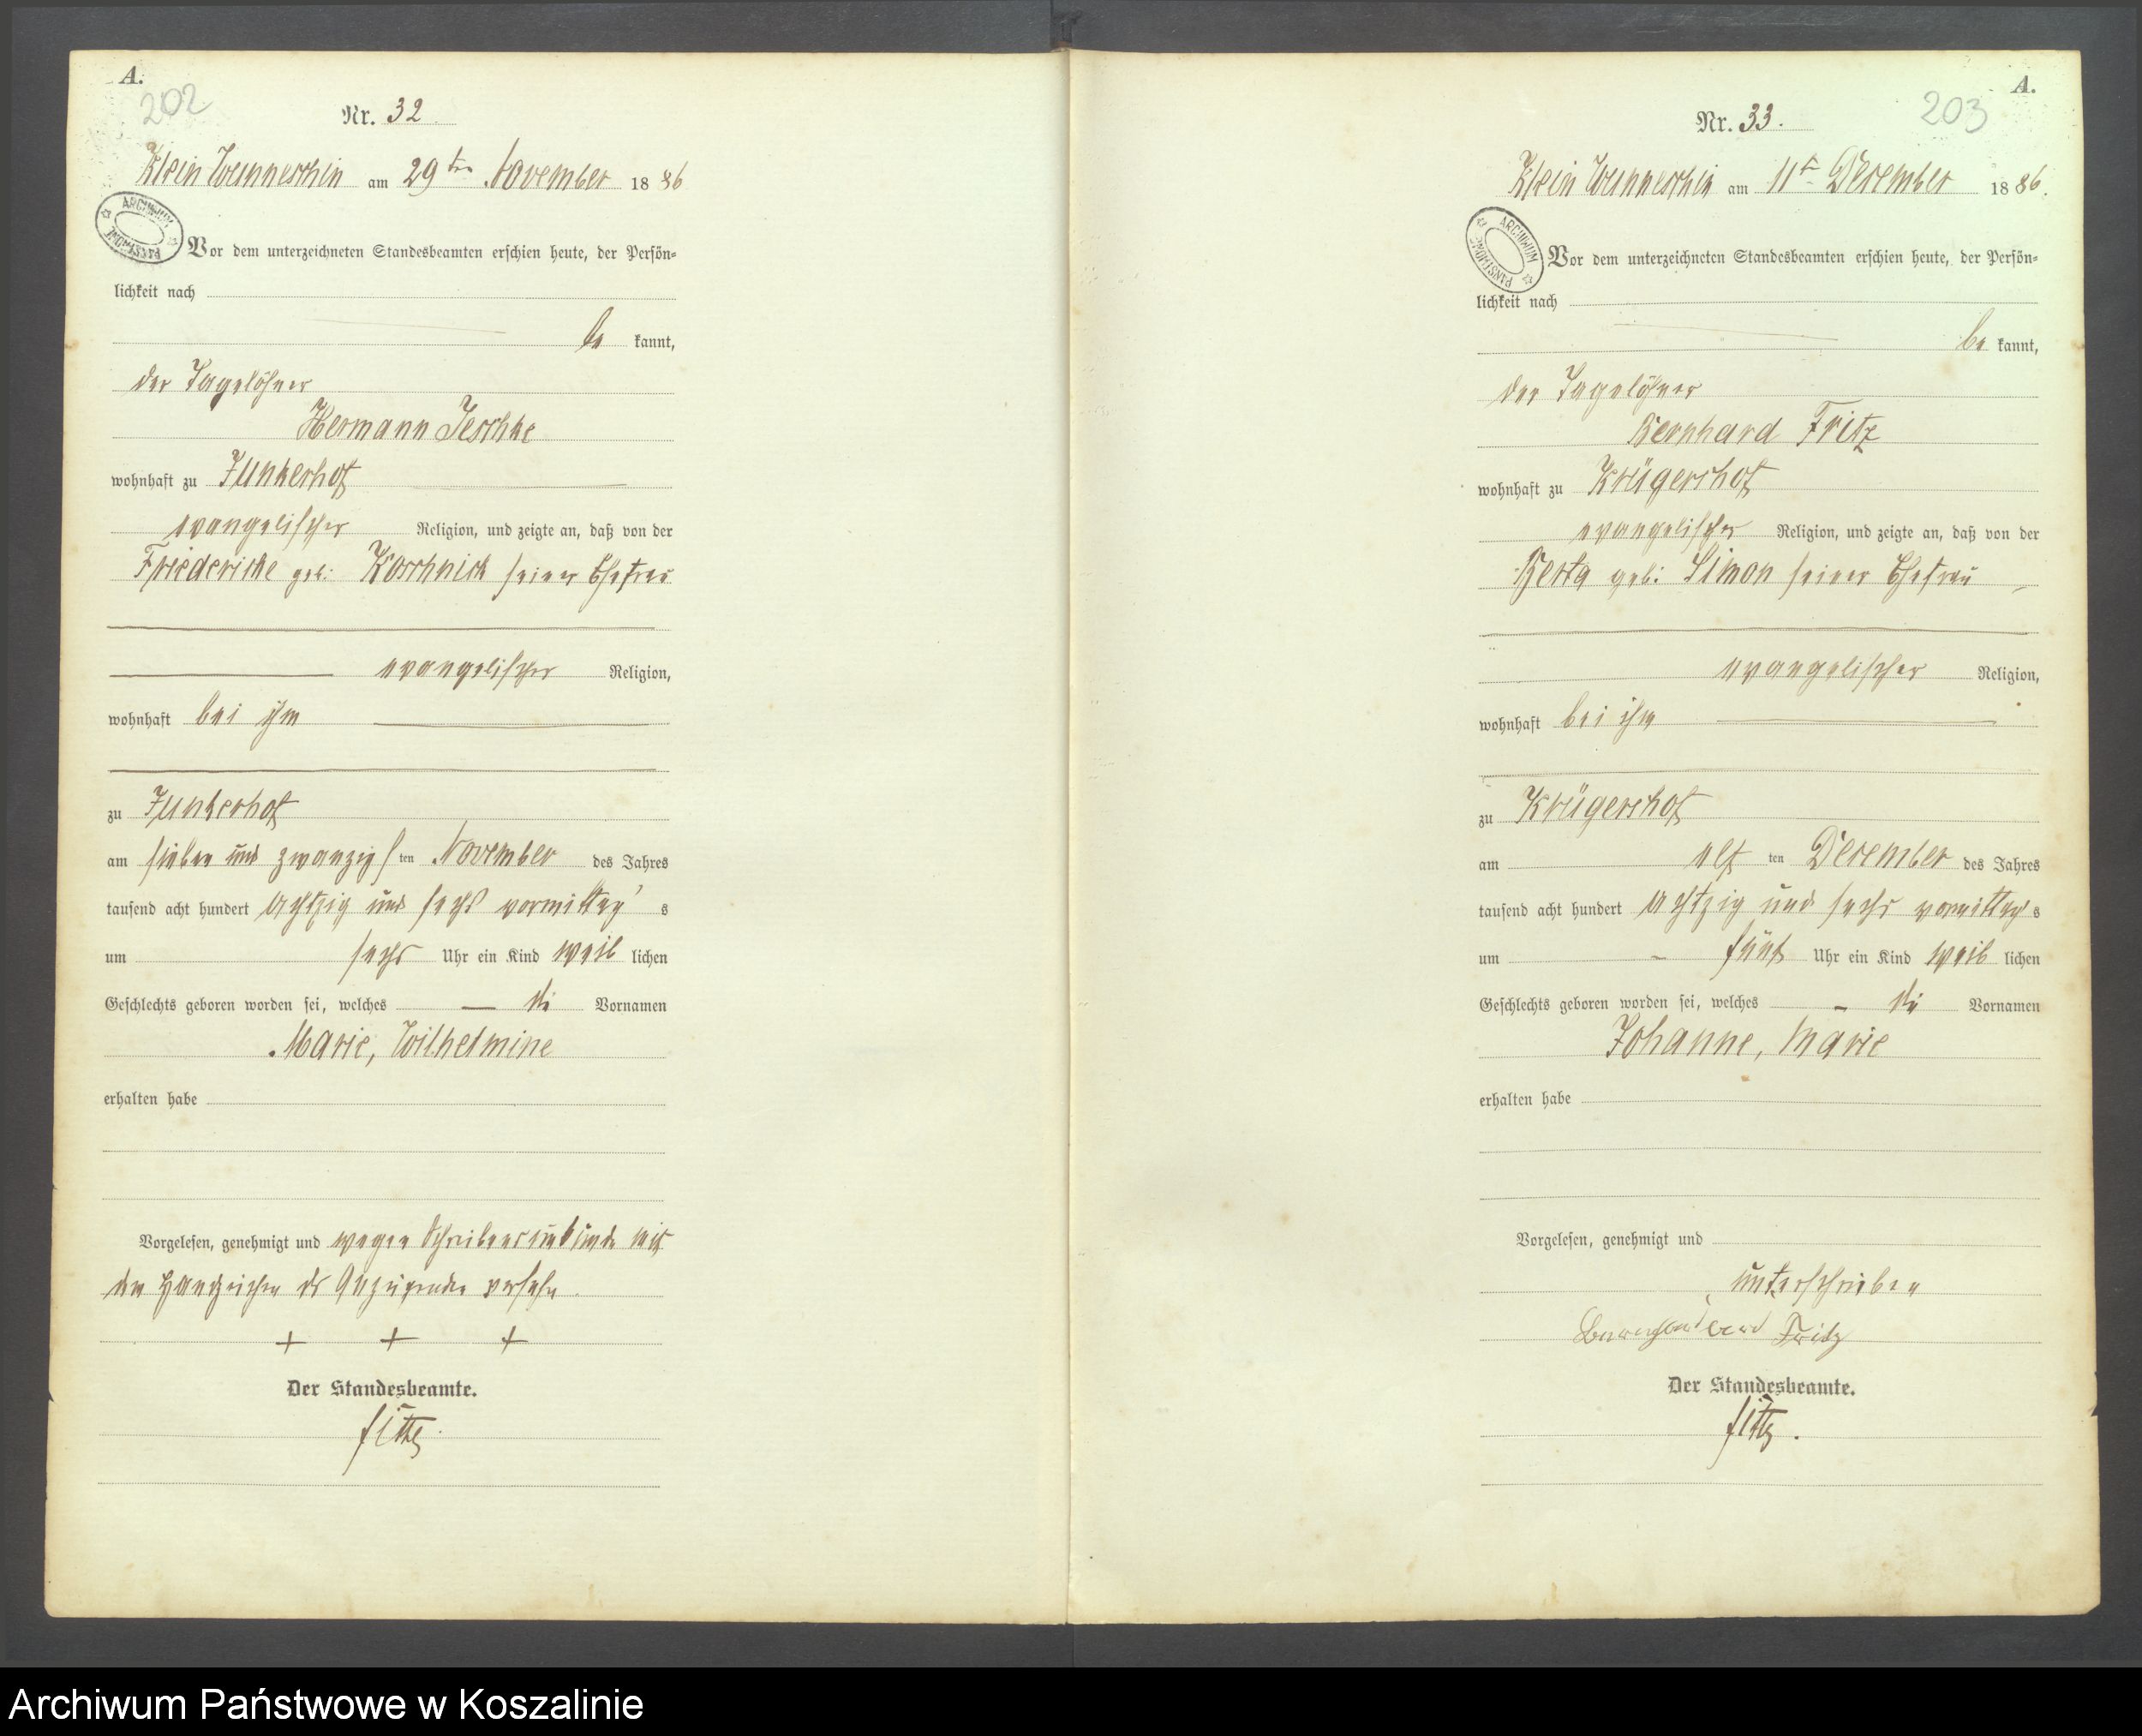 A.
202
Nr. 32.
Klein Wunneschin am 29ten November 1886
ARCHIWUM PAŃSTWOWE
Vor dem unterzeichneten Standesbeamten erschien heute, der Persön-
lichkeit nach
be kannt,
der Tagelöhner
Hermann Jeschke
wohnhaft zu Junkerhof
evangelischer Religion, und zeigte an, daß von der
Friedericke geb: Koschnick seiner Ehefrau
evangelischer Religion,
wohnhaft bei ihm
zu Junkerhof
am sieben und zwanzigsten November des Jahres
tausend acht hundert achtzig und sechs vormittags
um sechs Uhr ein Kind weiblichen
Geschlechts geboren worden sei, welches die Vornamen
Marie, Wilhelmine
erhalten habe
Vorgelesen, genehmigt und wegen Schreibensunkunde mit
den Handzeichen des Anzeigenden versehen.
+ + +
Der Standesbeamte.
A.
203
Nr. 33.
Klein Wunneschin am 11ten December 1886.
ARCHIWUM PAŃSTWOWE
Vor dem unterzeichneten Standesbeamten erschien heute, der Persön-
lichkeit nach
be kannt,
der Tagelöhner
Bernhard Fritz
wohnhaft zu Krügershof
evangelischer Religion, und zeigte an, daß von der
Berta geb: Simon seiner Ehefrau
evangelischer Religion,
wohnhaft bei ihm
zu Krügershof
am elften December des Jahres
tausend acht hundert achtzig und sechs vormittags
um fünf Uhr ein Kind weiblichen
Geschlechts geboren worden sei, welches die Vornamen
Johanne, Marie
erhalten habe
Vorgelesen, genehmigt und
unterschrieben
Fritz
Der Standesbeamte.
Archiwum Państwowe w Koszalinie